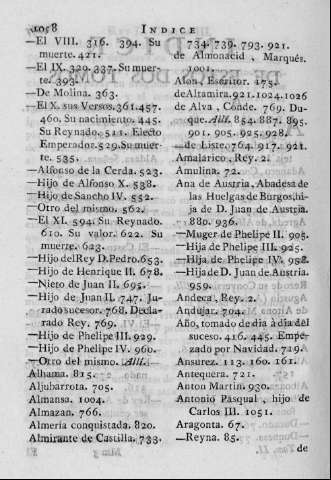 1058 INDICE
—El VIII. 316. 394. Su
muerte. 421.
—El IX. 339. 337. Su muer-
te. 393.
—De Molina. 363.
—El X. sus Versos. 361. 457.
460. Su nacimiento. 445.
Su Reynado. 511. Electo
Emperador. 529. Su muer-
te. 535.
—Alfonso de la Cerda. 523.
—Hijo de Alfonso X. 538.
—Hijo de Sancho IV. 552.
—Otro del mismo. 562.
—El XI. 594. Su Reynado.
610. Su valor. 622. Su
muerte. 623.
—Hijo del Rey D. Pedro. 653.
—Hijo de Henrique II. 678.
—Nieto de Juan II. 695.
—Hijo de Juan II. 747. Ju-
rado sucesor. 768. Decla-
rado Rey. 769.
—Hijo de Phelipe III. 929.
—Hijo de Phelipe IV. 960.
—Otro del mismo. Alli.
Alhama. 815.
Aljubarrota. 705.
Almansa. 1004.
Almazan. 766.
Almería conquistada. 820.
Almirante de Castilla. 733.
734. 739. 793. 921.
de Almonacid, Marqués.
1001.
Alon, Escritor. 175.
de Altamira. 921. 1024. 1026
de Alva, Conde. 769. Du-
que. Alli. 854. 887. 895.
901. 905. 925. 928.
—de Liste. 764. 917. 921.
Amalarico, Rey. 2.
Amulina. 72.
Ana de Austria, Abadesa de
las Huelgas de Burgos, hi-
ja de D. Juan de Austria.
880. 936.
—Muger de Phelipe II. 903.
—Hija de Phelipe III. 925.
—Hija de Phelipe IV. 958.
—Hija de D. Juan de Austria.
959.
Andeca, Rey. 2.
Andujar. 704.
Año, tomado de dia à dia del
suceso. 416. 445. Empe-
zado por Navidad. 719.
Ansurez. 113. 160. 161.
Antequera. 721.
Anton Martin. 930.
Antonio Pasqual, hijo de
Carlos III. 1051.
Aragonta. 67.
—Reyna. 85.
de